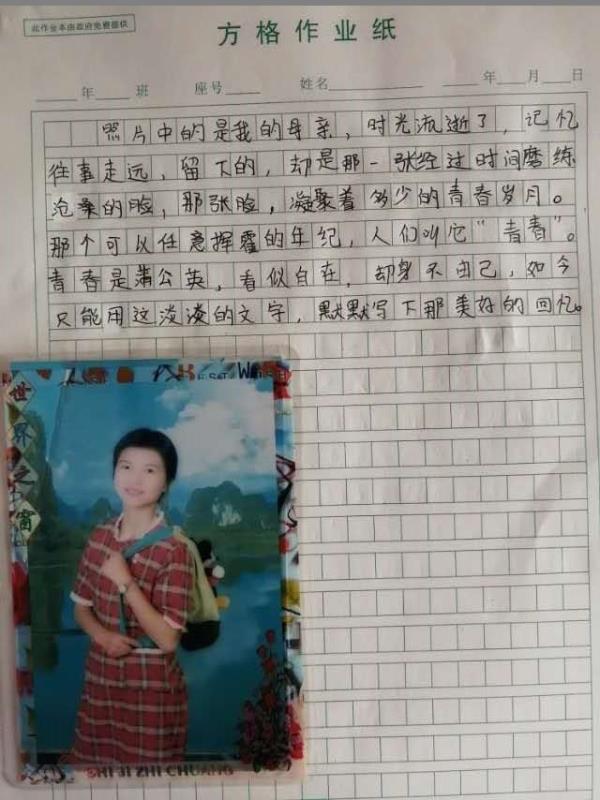 此作业本由政府免费提供
方格作业纸
年 班 座号 姓名 年 月 日
照片中的是我的母亲，时光流逝了，记忆
往事走远，留下的，却是那一张经过时间磨练
沧桑的脸，那张脸，凝聚着多少的青春岁月。
那个可以任意挥霍的年纪，人们叫它“青春”。
青春是蒲公英，看似自在，却身不由己，如今
只能用这淡淡的文字，默默写下那美好的回忆。
世界之窗
SHI JI ZHI CHUANG